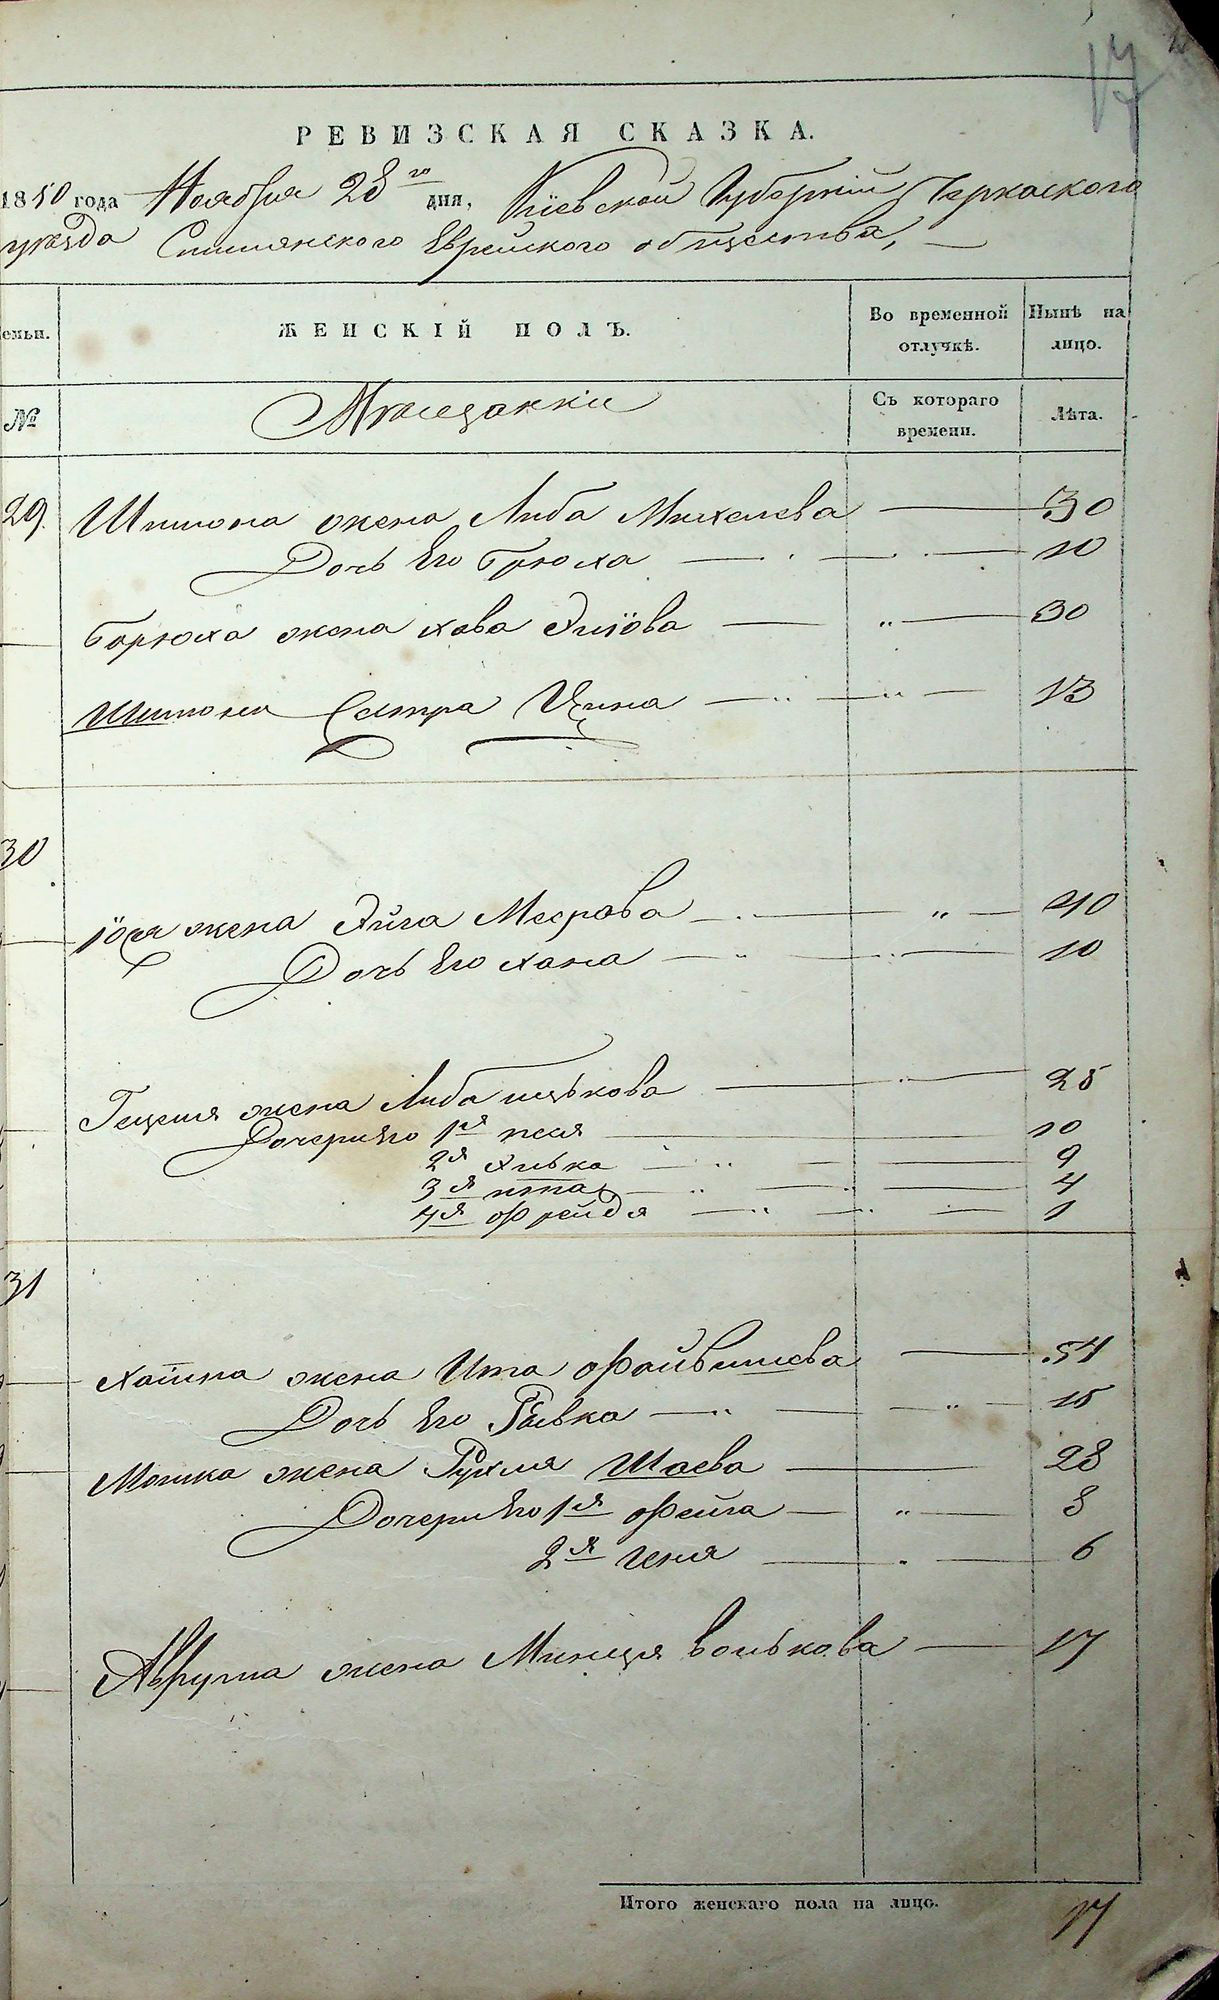 17
РЕВИЗСКАЯ СКАЗКА.
1850 года Ноября 28го дня, Кіевской Губерніи Черкаского
уезда Смилянского Еврейского общества,
емьи. ЖЕНСКІЙ ПОЛЪ. Во временной отлучкѣ. Нынѣ на лицо.
№ Мещанки Съ котораго времени. Лѣта.
29. Шимона жена Либа Михелева 30
Дочь Его Брюха 10
Борюха жена хава Элiова 30
Шимона Сестра Цина 13
30
Iося жена Хйга Меерова 40
Дочь Его хана 10
Гецеля жена Либа ицькова 25
Дочери Его 1я песя 10
2я хивка 9
3я ита 4
4я Фрейда 1
31
жена Ита Файвишева 54
Дочь Его Рывка 15
Мошка жена Рухля Шаева 28
Дочери Его 1я Фейга 8
2я Геня 6
Аврума жена Минця Волькова 17
Итого женскаго пола на лицо. 17